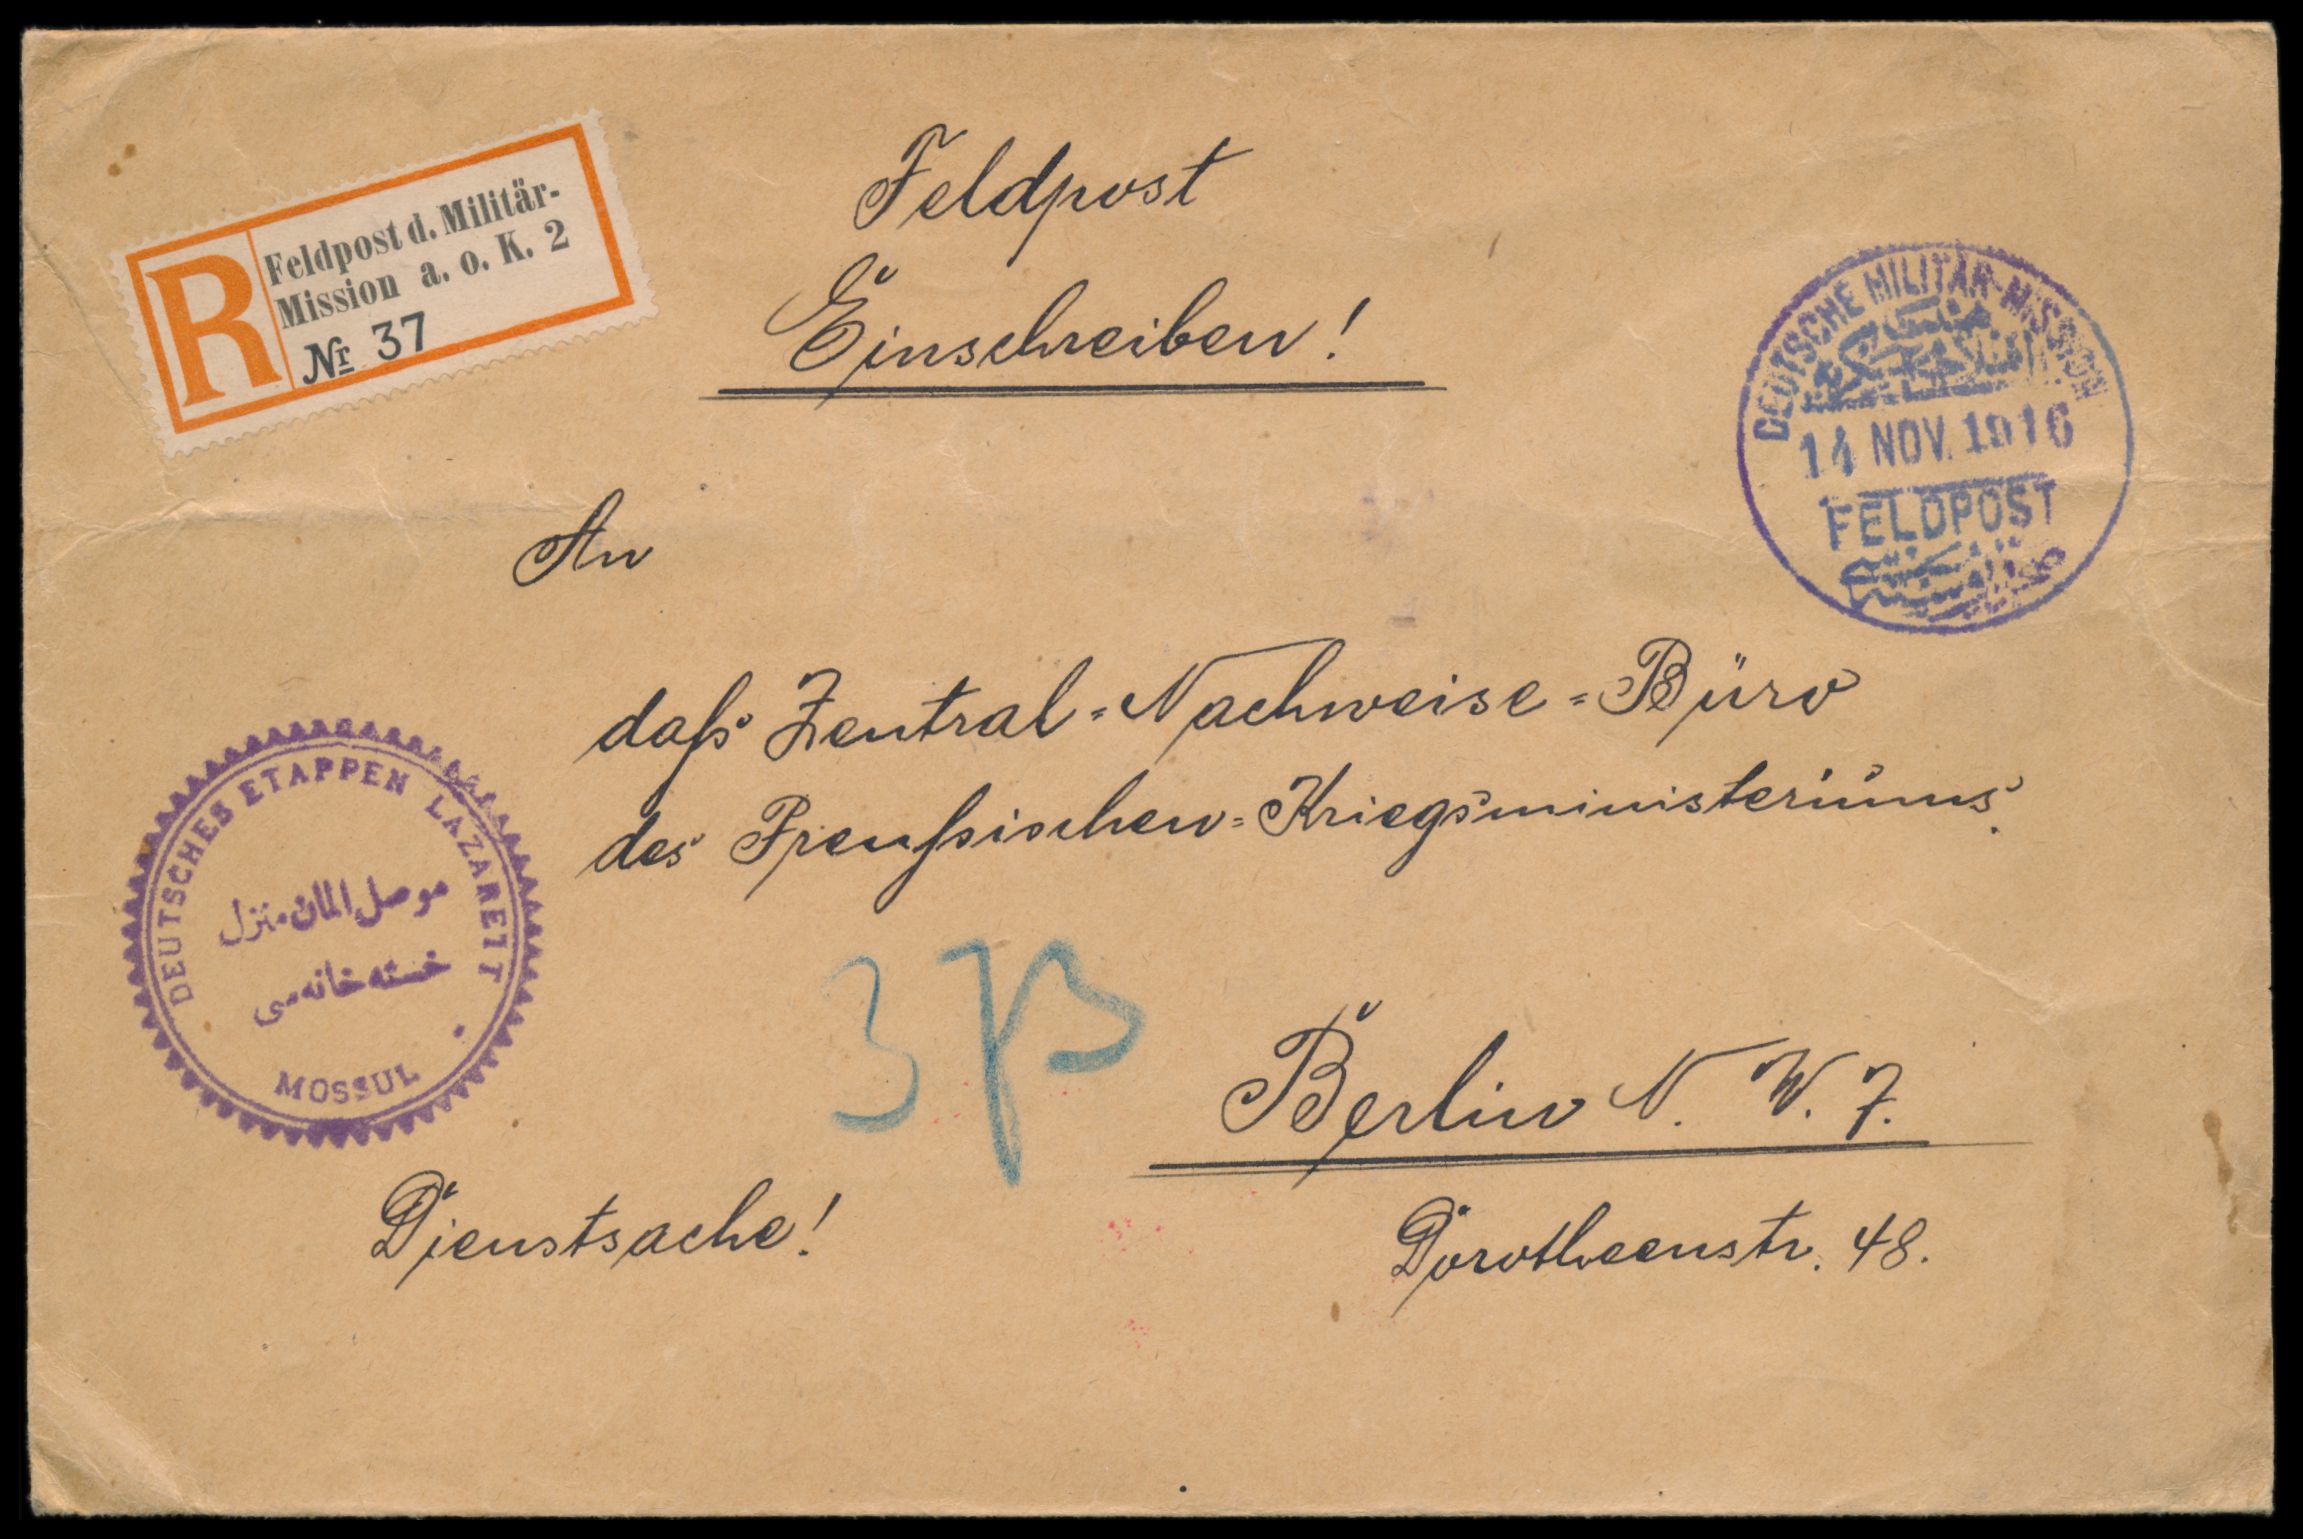 Feldpost d. Militär-
Mission a. o. K. 2
R
Nr 37
Feldpost
Einschreiben!
DEUTSCHE MILITÄR-MISSION
14 NOV. 1916
FELDPOST
An
daß Zentral-Nachweise-Büro
des Preußischen-Kriegsministeriums.
DEUTSCHES ETAPPEN LAZARETT
موصل المان منزل
خسته خانه سی
MOSSUL
Berlin N. W. 7.
Dienstsache!
Dorotheenstr. 48.